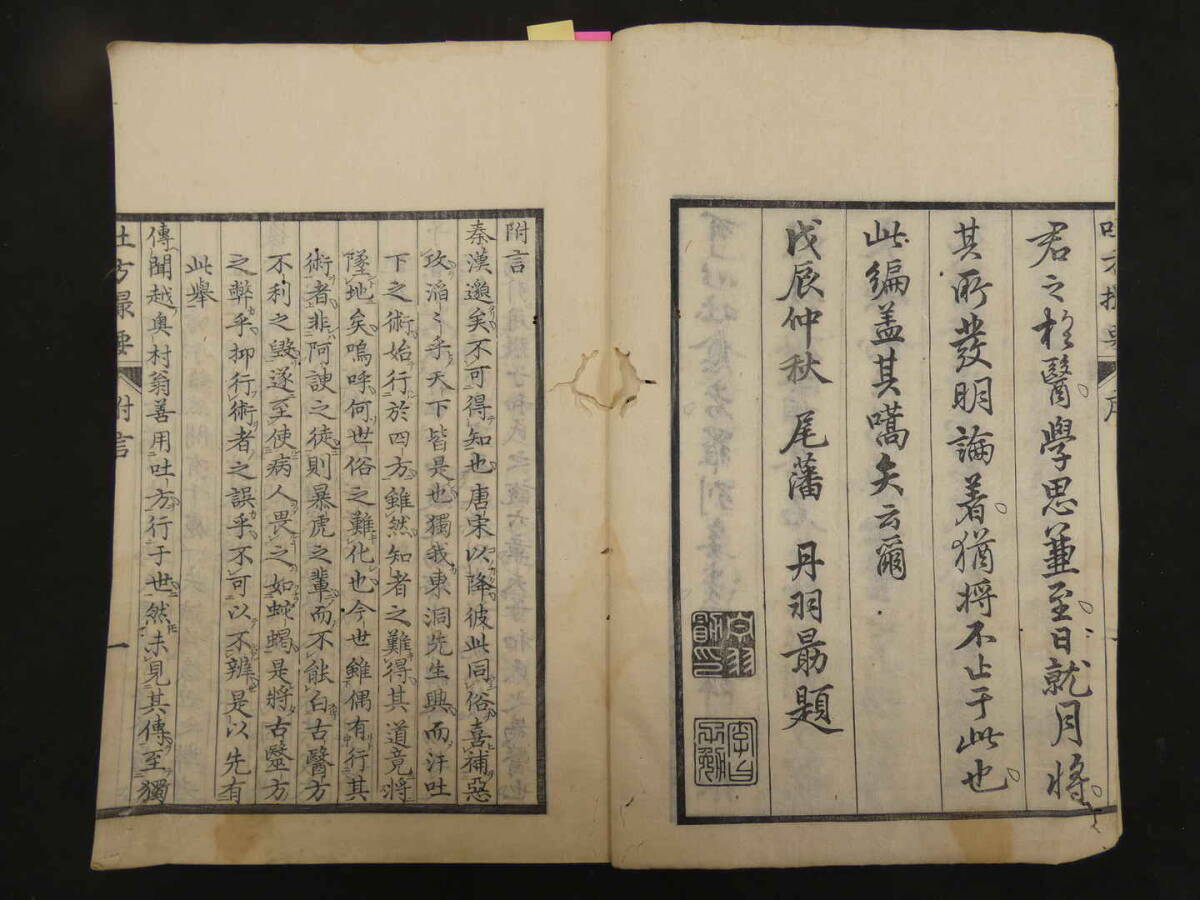 君之於醫學思兼至日就月將
其所發明論著猶將不止于此也
此編蓋其嚆矢云爾
戊辰仲秋 尾藩 丹羽勗題
附言
秦漢邈矣不可得知也唐宋以降彼此同俗喜補惡
攻滔〻乎天下皆是也獨我東洞先生興而汗吐
下之術始行於四方雖然知者之難得其道竟將
墜地矣嗚呼何世俗之難化也今世雖偶有行其
術者非阿諛之徒則暴虎之輩而不能白古醫方
不利之毀遂至使病人畏之如蛇蝎是將古毉方
之弊乎抑行術者之誤乎不可以不辨是以先有
此舉
傳聞越奥村翁善用吐方行于世然未見其傳至獨
吐方撮要 附言 一